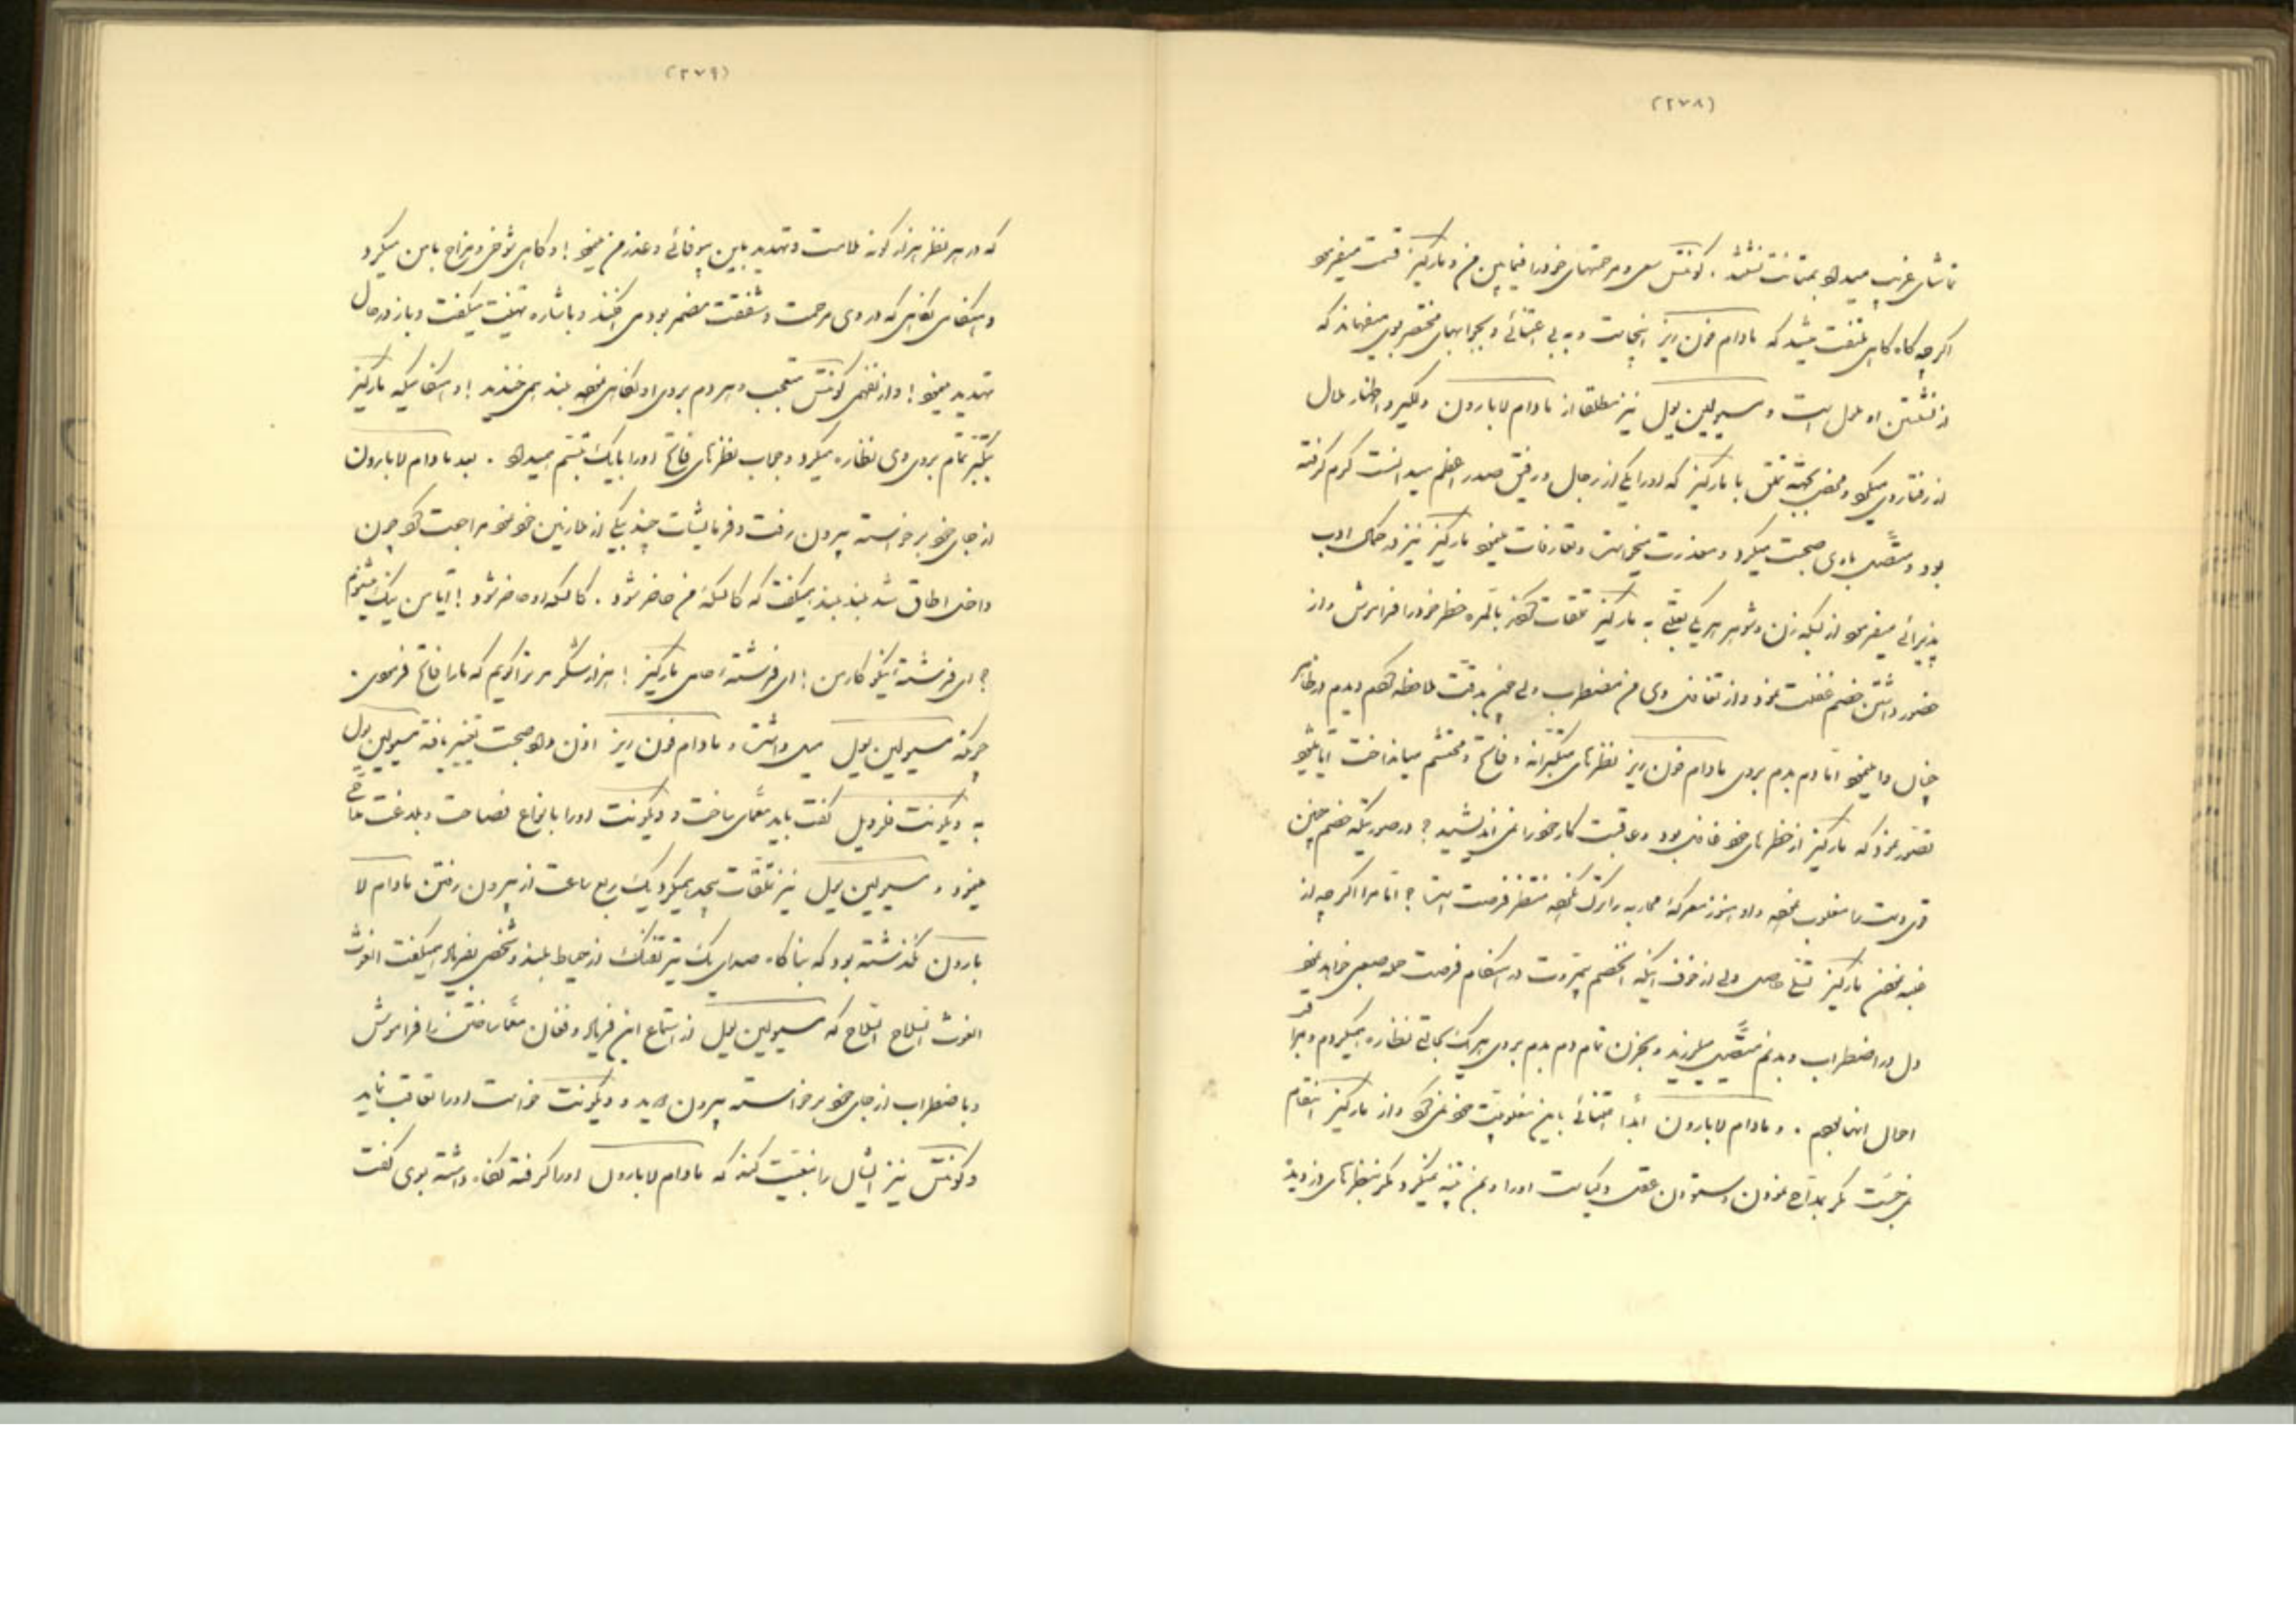 (۲۷۸)
تماشای غریب میداد بمتانت نشسته . کونتس سعی و مرحمتهای خود را فیمابین من و مارکیز قسمت میفرمود
اگرچه گاه گاهی ملتفت میشد که مادام فون ریز اینجاست و به بی اعتنائی و بجوابهای مختصر بوی میفهماند که
از نشستن او ملول است و مسیولین یول نیز مطلقا از مادام لابارون دلگیر و اظهار ملال
از رفتار وی میکرد و محض بجهة تملق با مارکیز که او را یکی از رجال و رفیق صدر اعظم میدانست گرم گرفته
بود و متصل با وی صحبت میکرد و معذرت میخواست و تعارفات مینمود مارکیز نیز در کمال ادب
پذیرائی میفرمود از بسکه زن و شوهر هر یکی به مارکیز تملقات کردند بالمره خطر خود را فراموش و از
حضور داشتن خصم غفلت نمود و از تغافل وی من مضطرب ولی چون بدقت ملاحظه کردم دیدم در ظاهر
چنان وا مینمود اما دم بدم بروی مادام فون ریز نظرهای متکبرانه و فاتح و محتشم میانداخت آیا میشود
تصور نمود که مارکیز از خطرهای خود غافل بود و عاقبت کار خود را نمی اندیشید ؟ در صورتیکه خصم چنین
قوی دست را مغلوب نموده و او هنوز معرکهٔ محاربه را ترک نکرده منتظر فرصت است ؟ اما مرا اگرچه از
غلبه نمودن مارکیز تسلی حاصل ولی از خوف اینکه الخصم بیمروت در انتقام فرصت حمله صعبی خواهد نمود
دل در اضطراب و بدنم متصل میلرزید و بحزن تمام دم بدم بروی هر یک بحالتی نظاره میکردم و مراقب
احوال آنها بودم . و مادام لابارون ابداً اعتنائی باین مغلوبیت خود نمی کرد و از مارکیز انتقام
نمی جست مگر بمداح نمودن و ستودن عقل و کیاست او را و بمن تنبه نمیکرد مگر بنظرهای دزدیده
(۲۷۹)
که در هر نظر هزار گونه ملامت و تهدید باین بیوفائی و عذر من مینمود ! و گاهی شوخی و مزاح با من میکرد
و هنگامی نگاهی که در وی مرحمت و شفقت مضمر بود می افکند و باشاره تهنیت میگفت و باز در حال
تهدید مینمود ! و از نفهمی کونتس متعجب و هر دم بروی او نگاهی نموده بلند همی خندید ! و هنگامیکه مارکیز
بتکبر تمام بروی وی نظاره میکرد و جواب نظرهای فاتح او را با یک تبسم میداد . بعد مادام لابارون
از جای خود برخواسته بیرون رفت و فرمایشات چند بیکی از ملازمین خود نموده مراجعت کرد چون
داخل اطاق شد بلند بلند میگفت که کالسکهٔ من حاضر شود . کالسکه او حاضر شود ! آیا من چه میشنوم
؟ ای فرشتهٔ نیکو کار من ! ای فرشتهٔ حامی مارکیز ! هزار شکر مر ترا کریم که ما را فاتح فرمودی .
چونکه مسیولین یول میل داشت و مادام فون ریز اذن داد صحبت تغییر یافته مسیولین یول
به ویکونت فلردیل گفت باید معمای ساخت و ویکونت او را بانواع فصاحت و بلاغت مداحی
مینمود و مسیولین یول نیز تملقات بیحد میکرد یک ربع ساعت از بیرون رفتن مادام لا
بارون نگذشته بود که بناگاه صدای یک تیر تفنگ از حیاط بلند و شخصی بفریاد میگفت الغوث
الغوث السلاح السلاح که مسیولین یول از استماع این فریاد و فغان معما ساختن را فراموش
و باضطراب از جای خود برخواسته بیرون دوید و ویکونت خواست او را تعاقب نماید
و کونتس نیز ایشان را تبعیت کند که مادام لابارون او را گرفته نگاه داشته بوی گفت